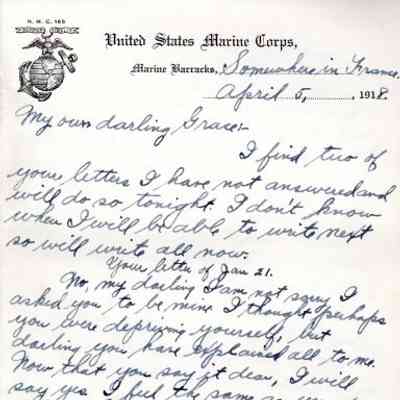 N. M. C. 165
United States Marine Corps,
Marine Barracks, Somewhere in France.
April 5, 1918.
My own darling Grace:-
I find two of
your letters I have not answered and
will do so tonight. I don't know
when I will be able to write next
so will write all now.
Your letter of Jan 21.
No, my darling I am not sorry I
asked you to be mine I thought perhaps
you were depriving yourself, but
darling you have explained all to me.
Now that you say it dear, I will
say yes I feel the same as